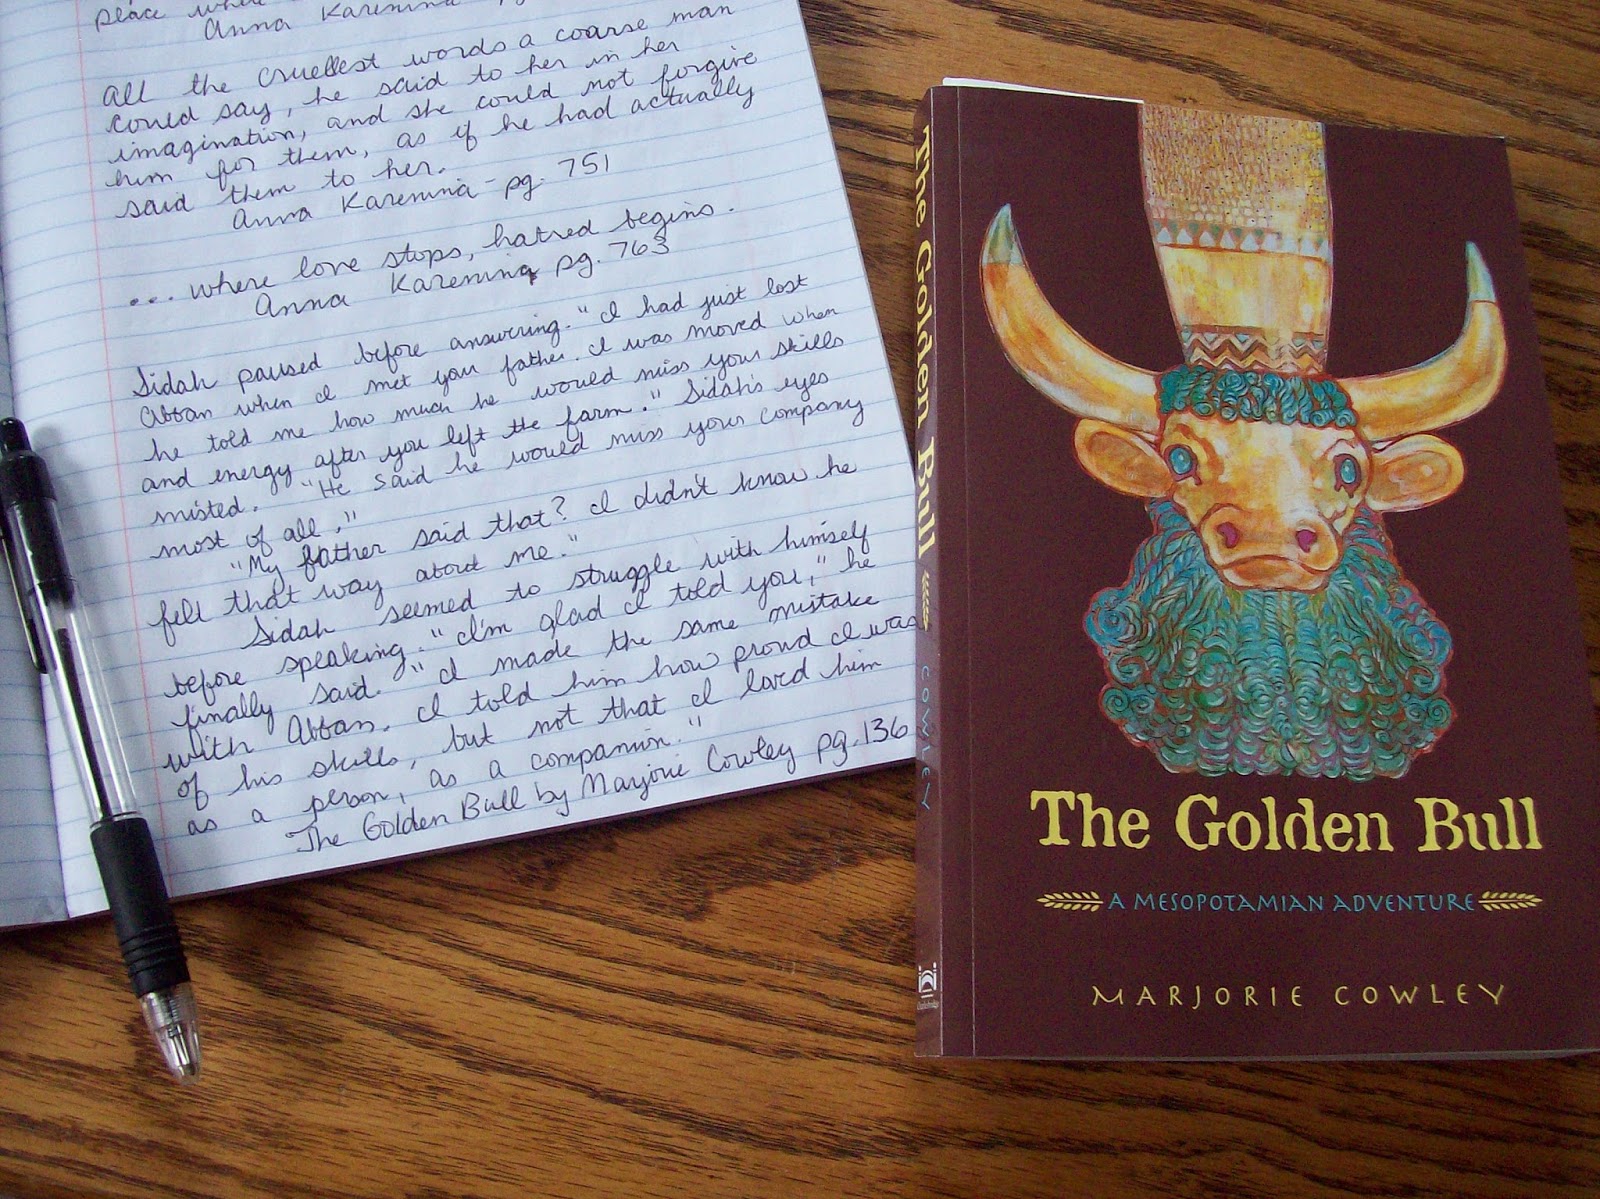 place where
Anna Karenina
All the cruellest words a coarse man
could say, he said to her in her
imagination, and she could not forgive
him for them, as if he had actually
said them to her.
Anna Karenina - pg. 751
... where love stops, hatred begins.
Anna Karenina pg. 763
Sidah paused before answering. "I had just lost
Abban when I met you father. I was moved when
he told me how much he would miss your skills
and energy after you left the farm." Sidah's eyes
misted. "He said he would miss your company
most of all."
"My father said that? I didn't know he
fell that way about me."
Sidah seemed to struggle with himself
before speaking. "I'm glad I told you," he
finally said. "I made the same mistake
with Abban. I told him how proud I was
of his skills, but not that I loved him
as a person, as a companion."
The Golden Bull by Marjorie Cowley pg. 136
The Golden Bull
COWLEY
The Golden Bull
A MESOPOTAMIAN ADVENTURE
MARJORIE COWLEY